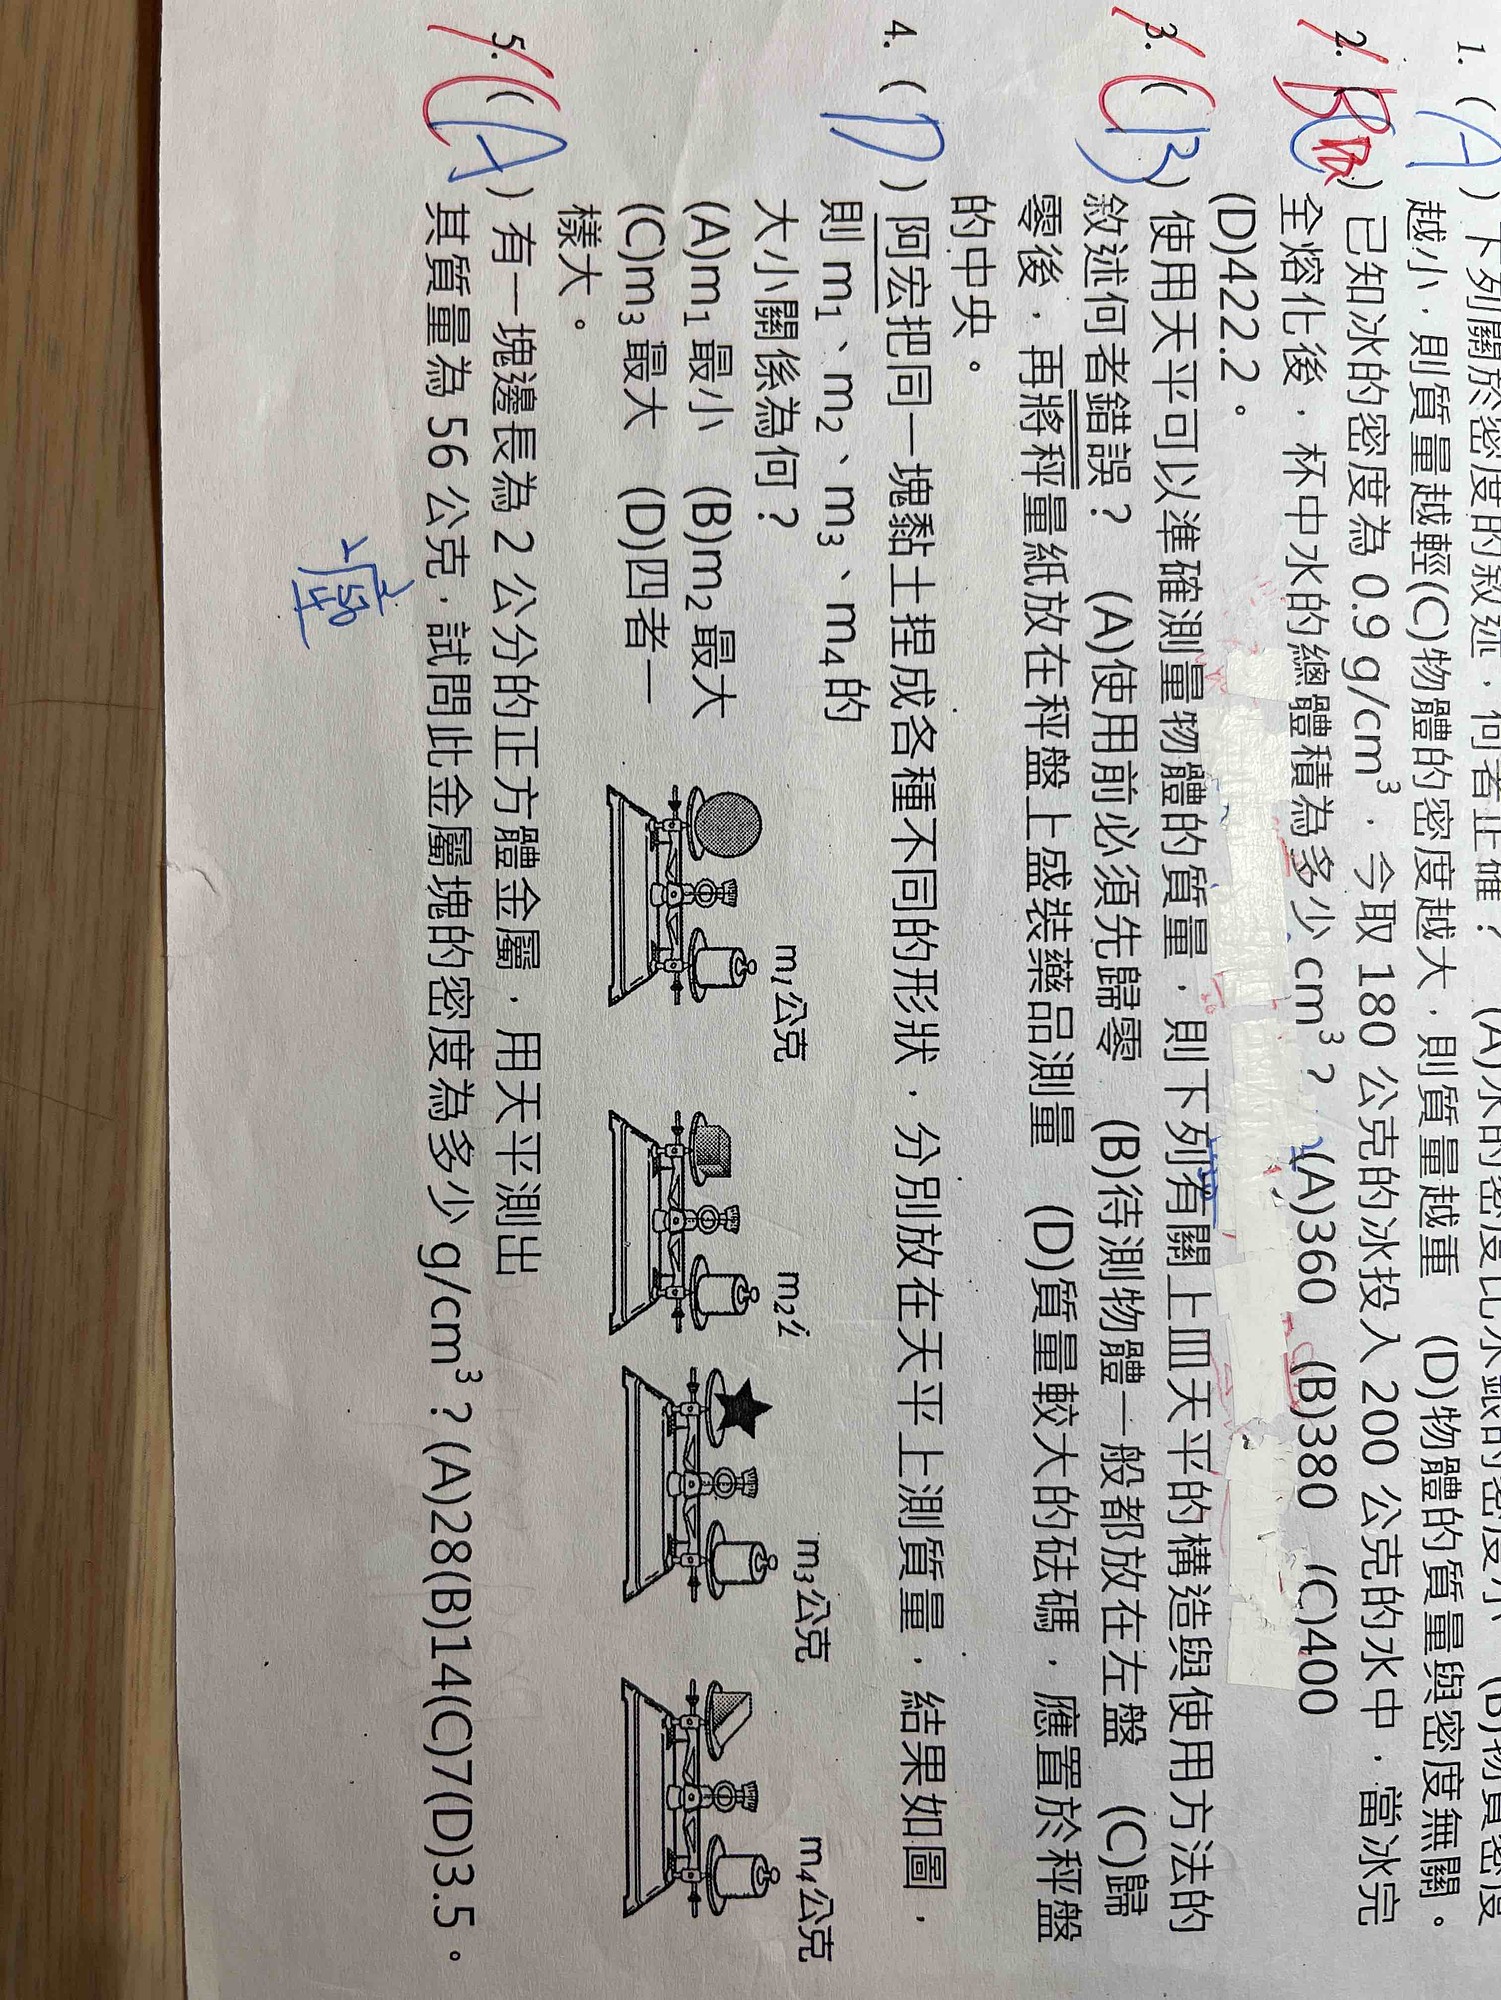 1. (A) 下列關於密度的敘述，何者正確？ (A)水的密度比水銀的密度小 (B)物質密度
越小，則質量越輕(C)物體的密度越大，則質量越重 (D)物體的質量與密度無關。
2. (B) 已知冰的密度為 0.9 g/cm³，今取 180 公克的冰投入 200 公克的水中，當冰完
全熔化後，杯中水的總體積為多少 cm³？ (A)360 (B)380 (C)400
(D)422.2。
3. (B) 使用天平可以準確測量物體的質量，則下列有關上皿天平的構造與使用方法的
敘述何者錯誤？ (A)使用前必須先歸零 (B)待測物體一般都放在左盤 (C)歸
零後，再將秤量紙放在秤盤上盛裝藥品測量 (D)質量較大的砝碼，應置於秤盤
的中央。
4. (D) 阿宏把同一塊黏土捏成各種不同的形狀，分別放在天平上測質量，結果如圖，
則 m₁、m₂、m₃、m₄ 的
大小關係為何？
(A)m₁ 最小 (B)m₂ 最大
(C)m₃ 最大 (D)四者一
樣大。
m₁公克
m₂公
m₃公克
m₄公克
5. (A) 有一塊邊長為 2 公分的正方體金屬，用天平測出
其質量為 56 公克，試問此金屬塊的密度為多少 g/cm³？(A)28(B)14(C)7(D)3.5。